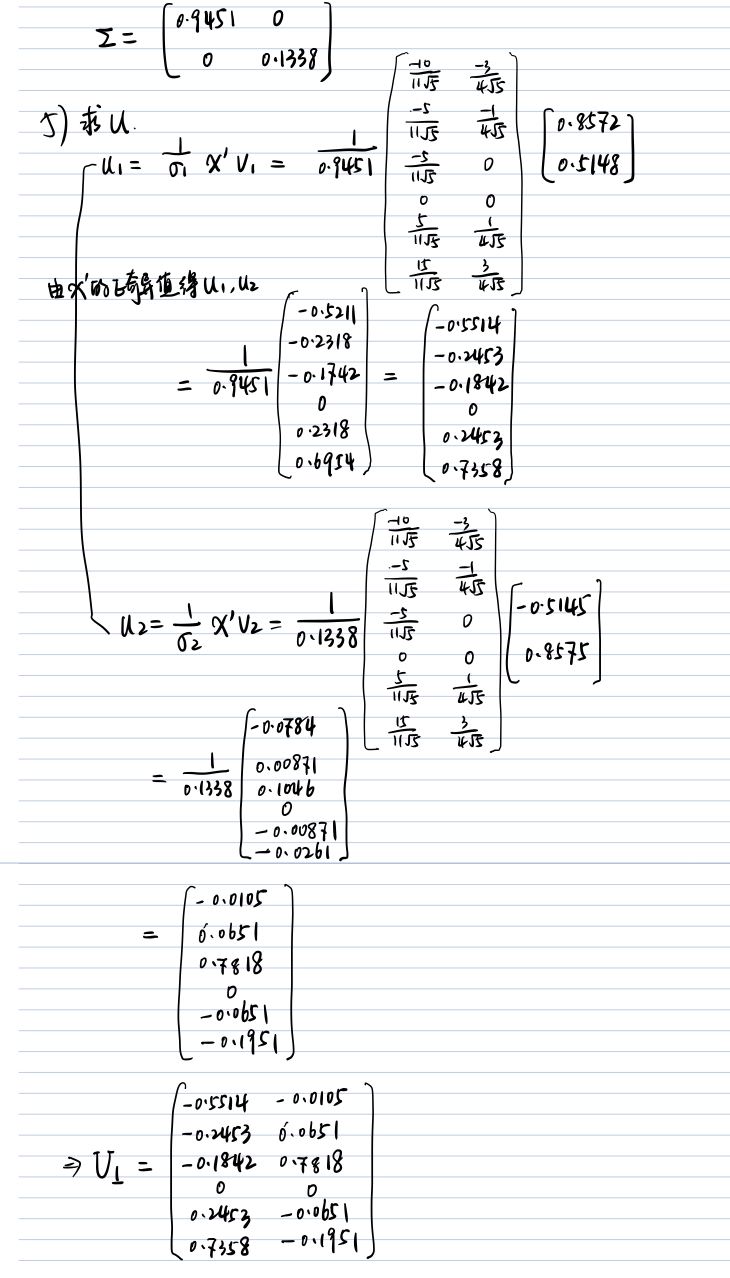 Σ = [0.9451 0; 0 0.1338]
5) 求 U.
u₁ = 1/σ₁ X' V₁ = 1/0.9451 [-10/11√5 -3/4√5; -5/11√5 -1/4√5; -5/11√5 0; 0 0; 5/11√5 1/4√5; 15/11√5 3/4√5] [0.8572; 0.5148]
由X'的正奇异值得 u₁, u₂
= 1/0.9451 [-0.5211; -0.2318; -0.1742; 0; 0.2318; 0.6954] = [-0.5514; -0.2453; -0.1842; 0; 0.2453; 0.7358]
u₂ = 1/σ₂ X' V₂ = 1/0.1338 [-10/11√5 -3/4√5; -5/11√5 -1/4√5; -5/11√5 0; 0 0; 5/11√5 1/4√5; 15/11√5 3/4√5] [-0.5145; 0.8575]
= 1/0.1338 [-0.0784; 0.00871; 0.1046; 0; -0.00871; -0.0261]
= [-0.0105; 0.0651; 0.7818; 0; -0.0651; -0.1951]
⇒ U₁ = [-0.5514 -0.0105; -0.2453 0.0651; -0.1842 0.7818; 0 0; 0.2453 -0.0651; 0.7358 -0.1951]